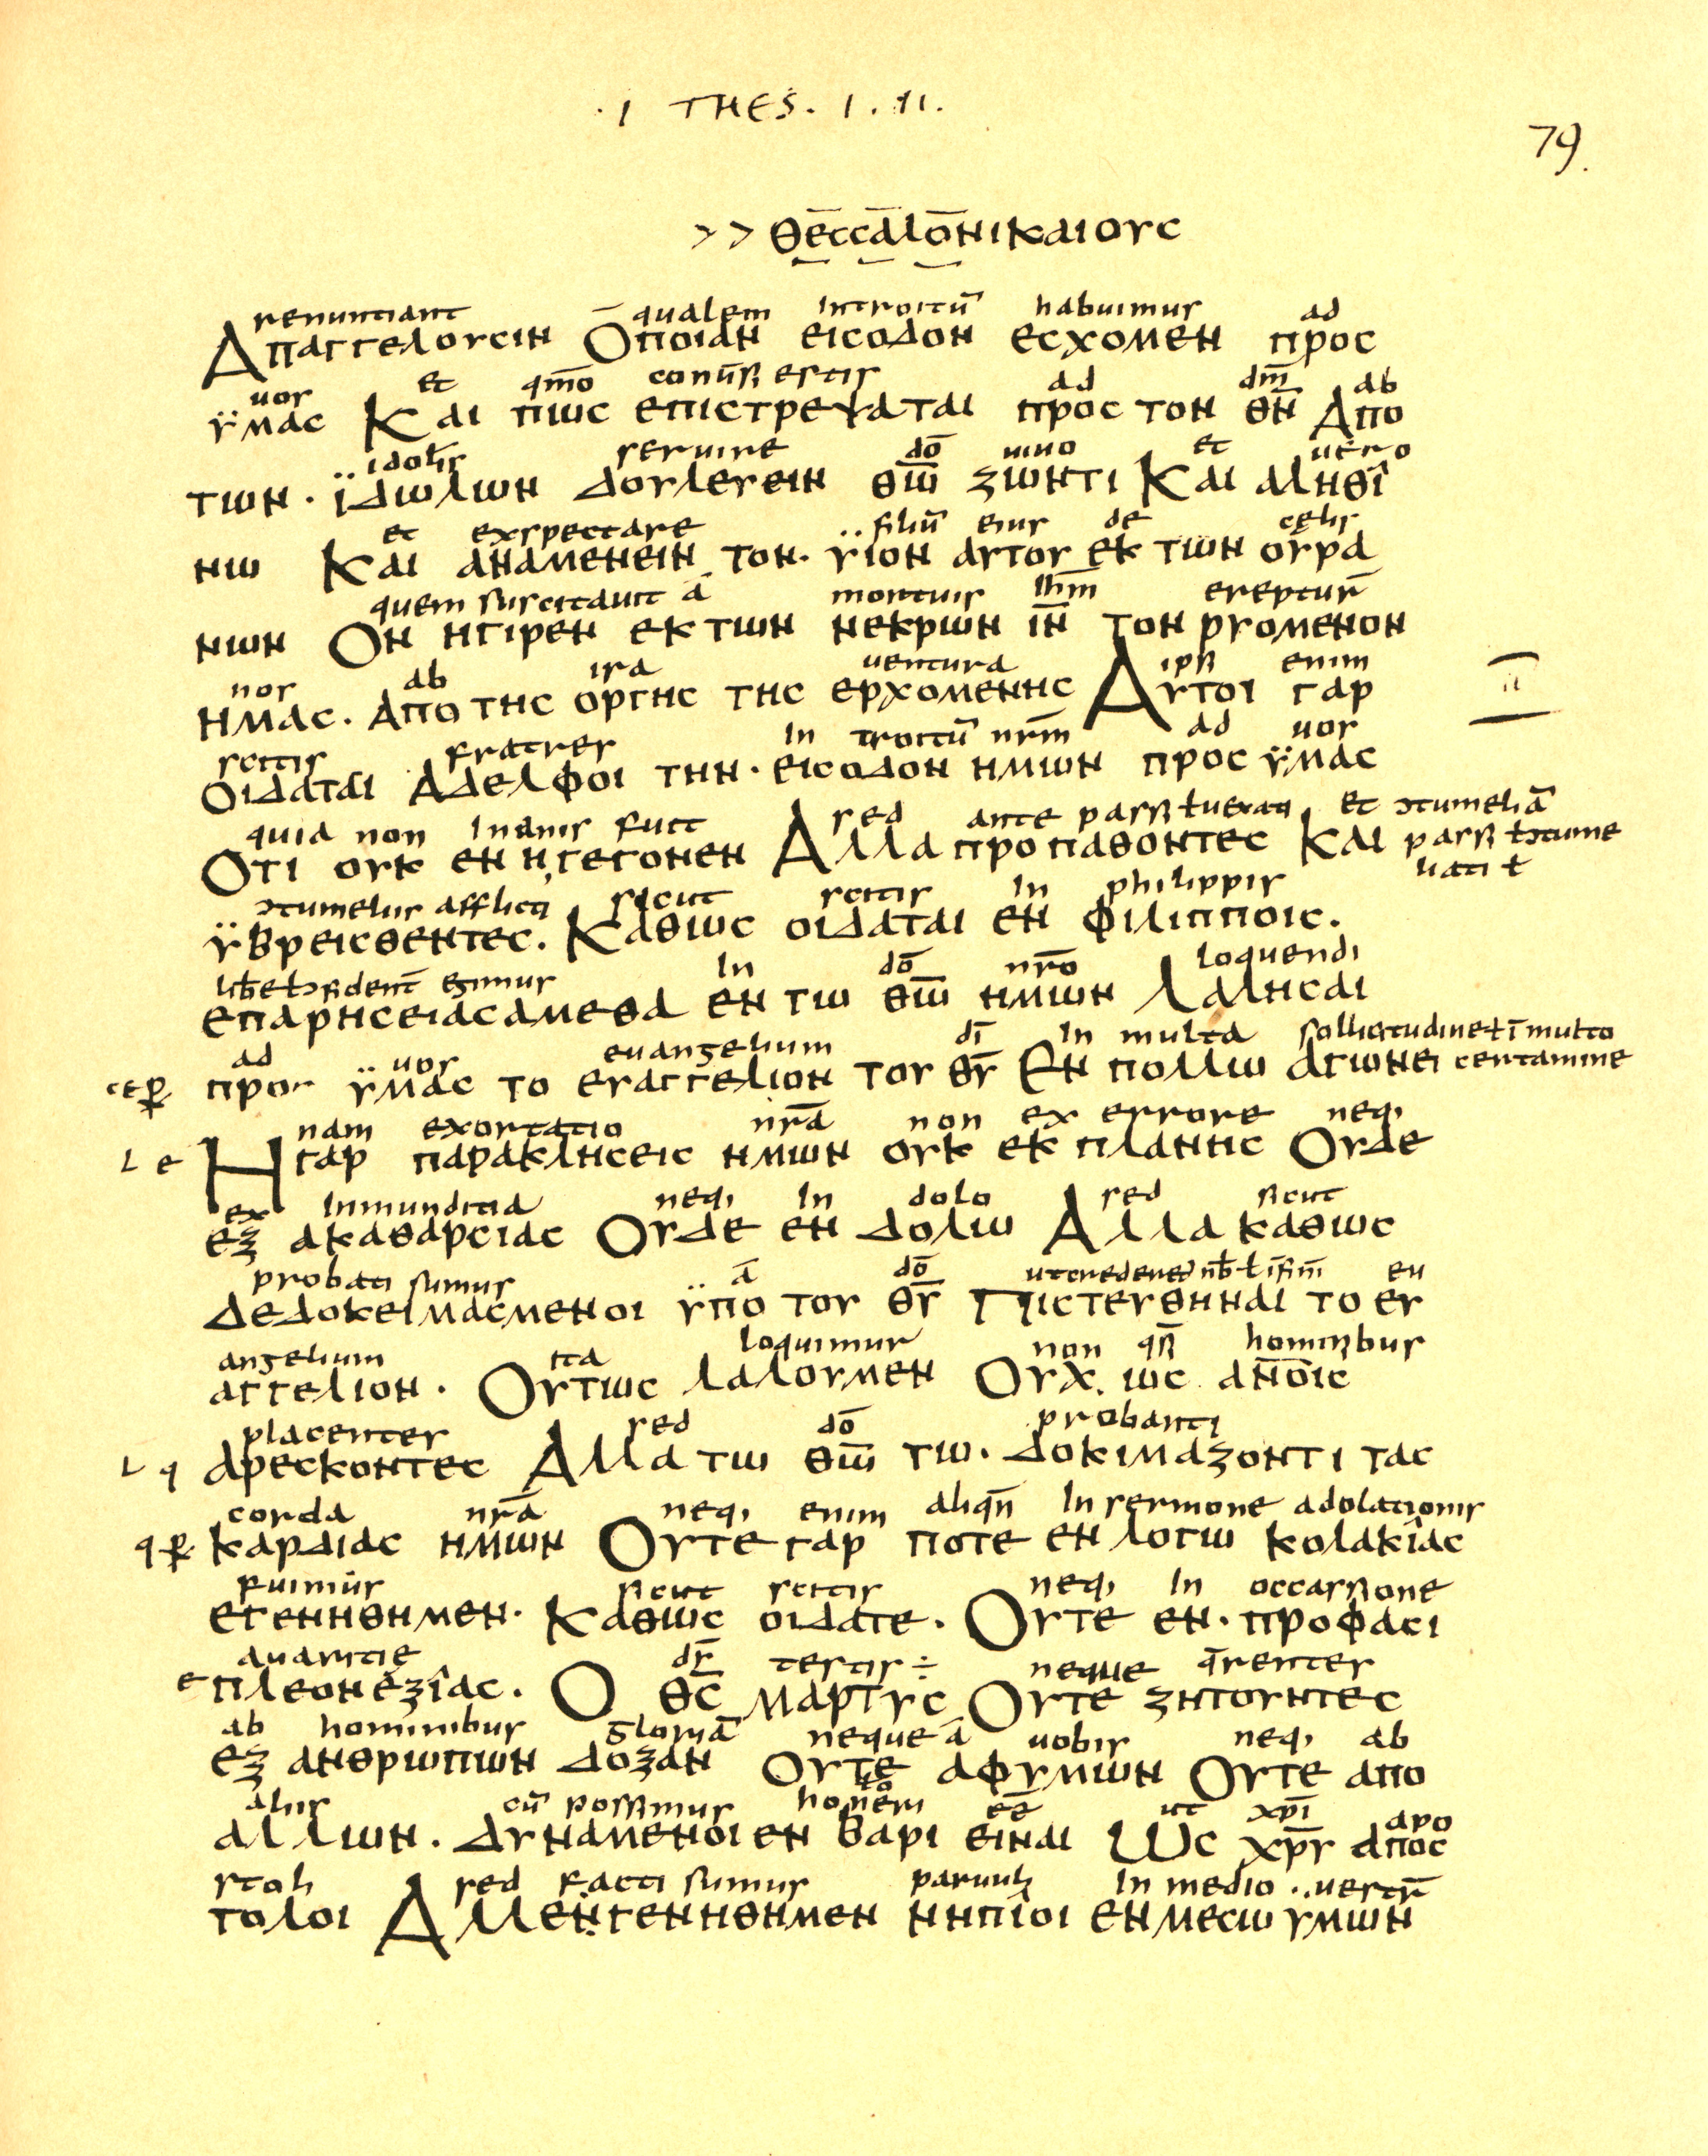 · I THES. I. II.
79.
>> θεccαλονικαιογc
renuntiant qualem Introitū habuimus ad
Απαγγελογcιν Οποιαν ειcοδον εcχομεν προc
uos et qm̄o conūsi estis ad dm̄ ab
ϋμαc Και πωc επιcτρεψαται προc τον θ̄ν Απο
idolis seruire dō uiuo et uero
των · ϊδωλιων δογλεγειν θω̄ ζωντι Και αληθι
et exspectare filiū eius de celis
νω Και αναμενειν τον · ϋιον αγτογ εκ των ογρα
quem suscitauit ā mortuis Ihm̄ erepturū
νων Ον ηγιρεν εκ των νεκρων ῑν τον ργομενον
nos ab ira uentura ipsi enim
ημαc · Απο τηc οργηc τηc ερχομενηc Αγτοι γαρ
II
scitis fratres In troitū nrm̄ ad uos
οιδαται Αδελφοι την · ειcοδον ημων προc ϋμαc
quia non Inanis fuit sed ante passi ł uexati et ɔtumeliā
Οτι ογκ εν ηγεγονεν Αλλα προπαθοντεc Και passi ł ɔtume
liati ł
ɔtumeliis afflicti sicut scitis In philippis
ϋβρειcθεντεc. Καθωc οιδαται εν φιλιπποιc.
libe ł ɔfident̄ egimus In dō nrō loquendi
επαρηcειαcαμεθα εν τω θω̄ ημων Λαληcαι
ad uos euangelium dī In multa sollicitudine ł ī multo
προc ϋμαc το εγαγγελιον τογ θ̄γ Εν πολλω αγωνει certamine
nam exortatio nrā non ex errore neq,
L e Η γαρ παρακληcειc ημων ογκ εκ πλανηc Ογδε
ex Inmunditia neq, In dolo sed sicut
εξ ακαθαρcιαc Ογδε εν δολω Αλλα καθωc
probati sumus ā dō eu
δεδοκειμαcμενοι ϋπο τογ θ̄γ Πιcτεγθηναι το εγ
angelium ita loquimur non qsi hominibus
αγγελιον · Ογτωc λαλογμεν Ογχ. ωc αν̄οιc
placentes sed dō probanti
L q αρεcκοντεc Αλλα τω θω̄ τω · δοκιμαζοντι ταc
corda nrā neq, enim aliqn̄ In sermone adolationis
καρδιαc ημων Ογτε γαρ ποτε εν λογω κολακιαc
fuimus sicut scitis neq, In occassione
εγενηθημεν · Καθωc οιδατε · Ογτε εν · προφαcι
auaritie dr̄ testis ÷ neque q̄rentes
ε πλεονεξιαc · Ο θ̄c μαρτγc Ογτε ζητογντεc
ab hominibus gloriā neque ā uobis neq, ab
εξ ανθρωπων δοξαν Ογτε αφγμων Ογτε απο
aliis cū possimus ēē ut xpī apo
αλλων · δγναμενοι εν βαρι ειναι Ωc χρ̄γ αποc
stoli sed facti sumus paruuli In medio uestrū
τολοι Αλλεν γενηθημεν νηπιοι εν μεcω ϋμων